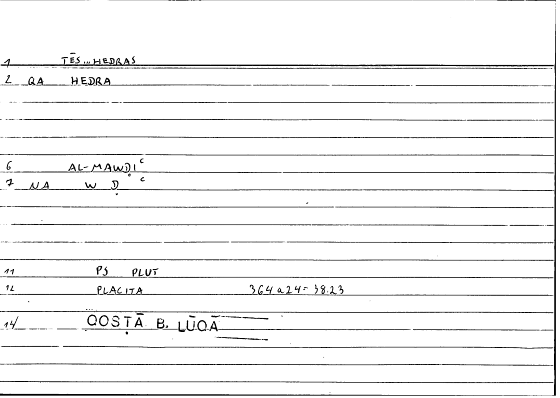 1 TĒS...HEDRAS
2 QA HEDRA
6 AL-MAWḌIʿ
7 NA W Ḍ ʿ
11 PS PLUT
12 PLACITA 364a24 = 38.23
14/ QOSṬĀ B. LŪQĀ